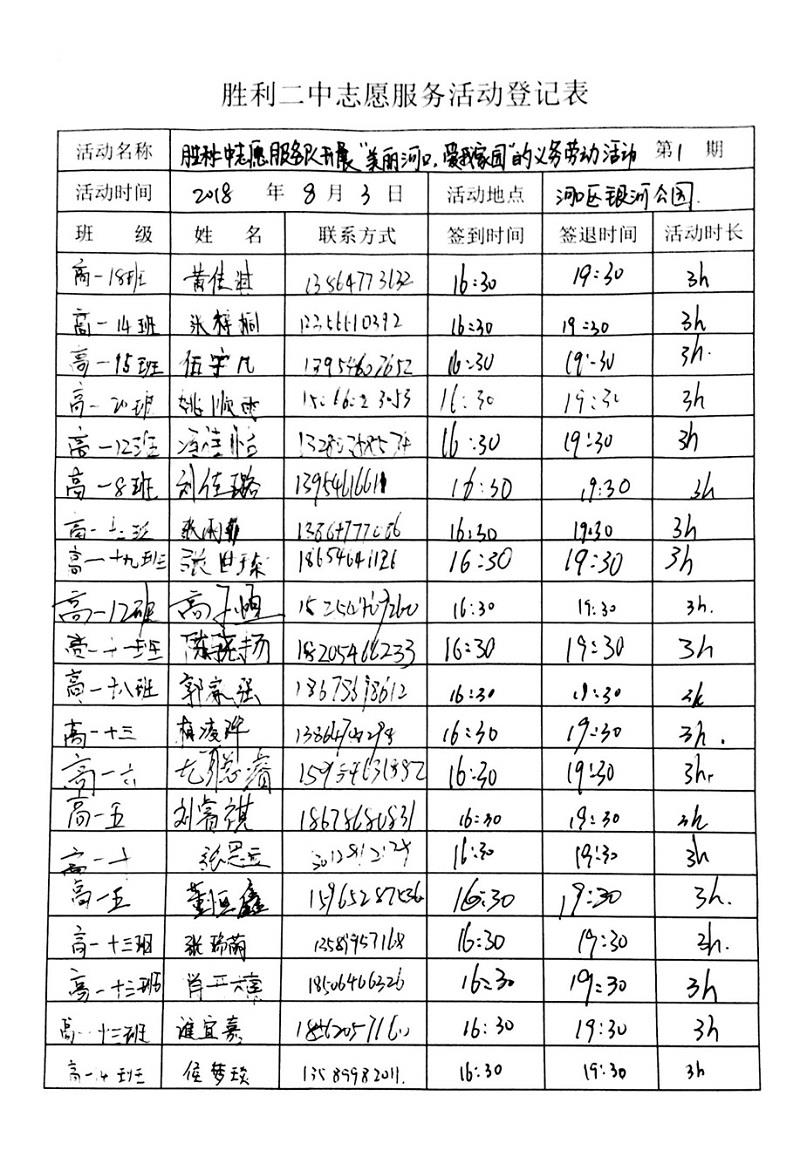 胜利二中志愿服务活动登记表
活动名称 胜利二中志愿服务队开展“美丽河口,爱我家园”的义务劳动活动 第1期
活动时间 2018年8月3日 活动地点 河口区银河公园.
班级 姓名 联系方式 签到时间 签退时间 活动时长
高一18班 黄佳淇 13864773132 16:30 19:30 3h
高一14班 张梓桐 16:30 19:30 3h
高一15班 伍宇凡 13954607652 16:30 19:30 3h.
高一20班 16:30 19:30 3h
高一12班 16:30 19:30 3h
高一8班 刘佳璐 16:30 19:30 3h
张雨菲 16:30 19:30 3h
高一十九班 张世琛 18654641126 16:30 19:30 3h
高一12班 高子恒 16:30 19:30 3h.
高一十一班 陈晓扬 18205466233 16:30 19:30 3h
高一十八班 郭家强 18678698612 16:30 19:30 3h
高一十三 16:30 19:30 3h.
高一六 16:30 19:30 3h
高一五 刘睿祺 18678680831 16:30 19:30 3h
高一十 16:30 19:30 3h
高一五 董恒鑫 16:30 19:30 3h.
高一十三班 张瑞萌 13589957168 16:30 19:30 3h.
高一十三班 18506466326 16:30 19:30 3h
高一十三班 谯宜嘉 16:30 19:30 3h
高一4班 侯梦琰 13589982011. 16:30 19:30 3h